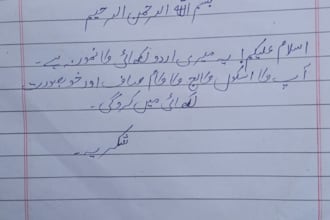 بسم اللہ الرحمن الرحیم
اسلام علیکم! یہ میری اردو لکھائی کا نمونہ ہے۔
آپ کا اسکول کالج کا کام صاف اور خوبصورت
لکھائی میں کروگی۔
شکریہ۔